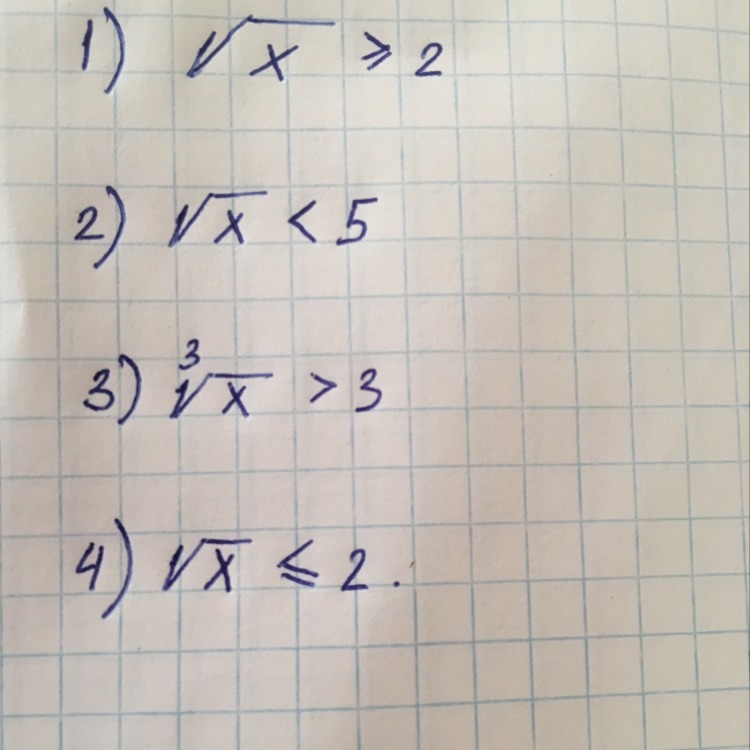 1) √x ⩾ 2
2) √x < 5
3) ∛x > 3
4) √x ≤ 2.